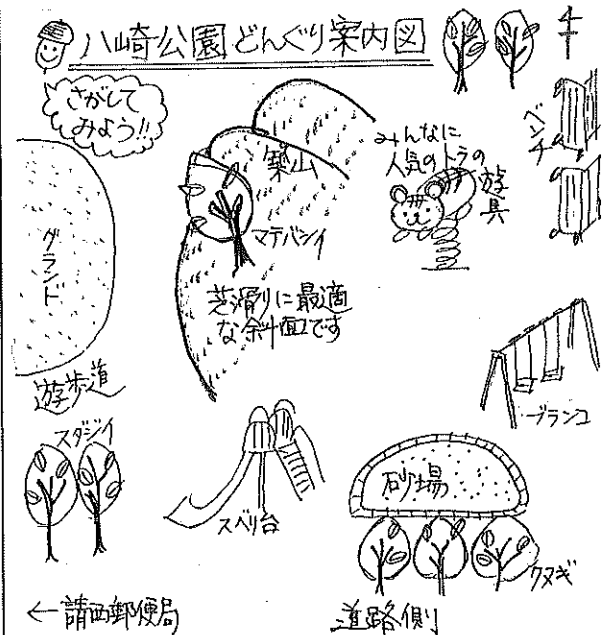 八崎公園どんぐり案内図
さがして
みよう!!
築山
マテバシイ
みんなに
人気のトラの
遊具
ベンチ
グランド
芝滑りに最適
な斜面です
遊歩道
スダジイ
ブランコ
スベリ台
砂場
クヌギ
←請西郵便局
道路側